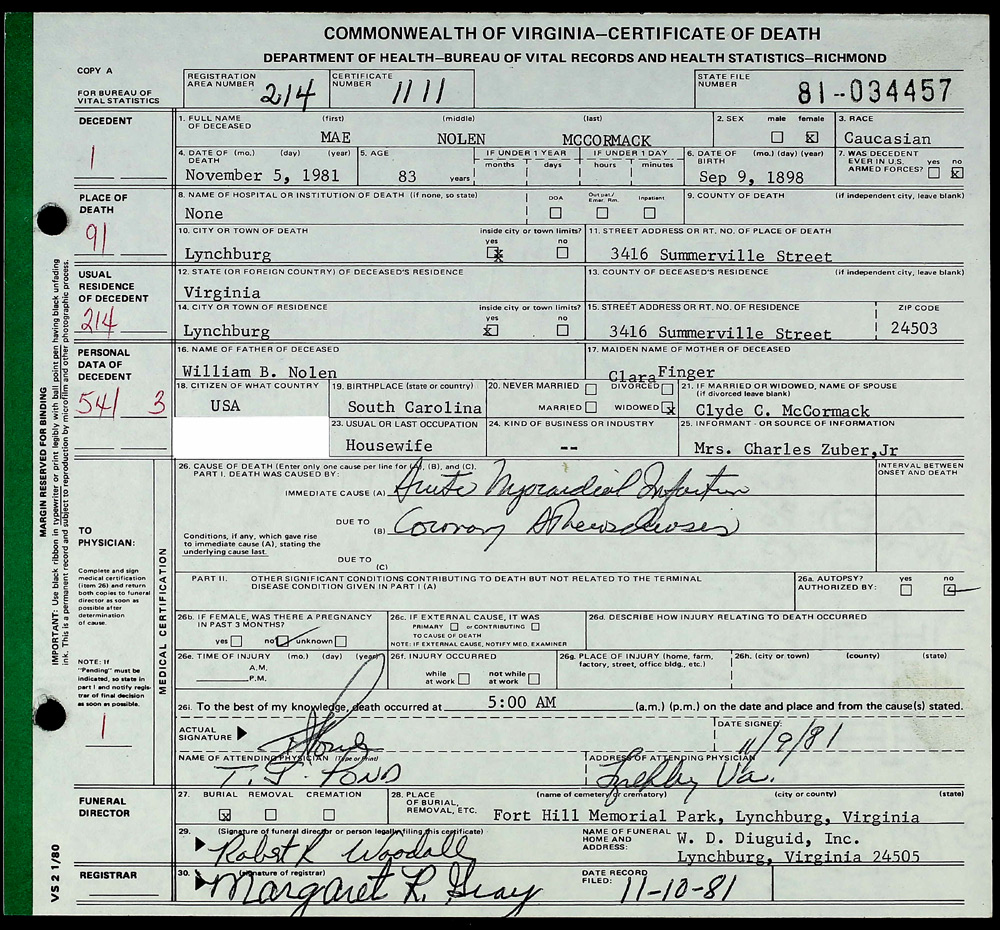 COMMONWEALTH OF VIRGINIA—CERTIFICATE OF DEATH
DEPARTMENT OF HEALTH—BUREAU OF VITAL RECORDS AND HEALTH STATISTICS—RICHMOND
COPY A
FOR BUREAU OF VITAL STATISTICS
REGISTRATION AREA NUMBER 214
CERTIFICATE NUMBER 1111
STATE FILE NUMBER 81-034457
DECEDENT
1
1. FULL NAME OF DECEASED (first) (middle) (last)
MAE NOLEN MCCORMACK
2. SEX male female x
3. RACE
Caucasian
4. DATE OF DEATH (mo.) (day) (year)
November 5, 1981
5. AGE
83 years
IF UNDER 1 YEAR months days
IF UNDER 1 DAY hours minutes
6. DATE OF BIRTH (mo.) (day) (year)
Sep 9, 1898
7. WAS DECEDENT EVER IN U.S. ARMED FORCES? yes no x
PLACE OF DEATH
91
8. NAME OF HOSPITAL OR INSTITUTION OF DEATH (if none, so state)
None
DOA Outpat./ Emer. Rm. Inpatient
9. COUNTY OF DEATH (if independent city, leave blank)
10. CITY OR TOWN OF DEATH inside city or town limits? yes x no
Lynchburg
11. STREET ADDRESS OR RT. NO. OF PLACE OF DEATH
3416 Summerville Street
USUAL RESIDENCE OF DECEDENT
214
12. STATE (OR FOREIGN COUNTRY) OF DECEASED'S RESIDENCE
Virginia
13. COUNTY OF DECEASED'S RESIDENCE (if independent city, leave blank)
14. CITY OR TOWN OF RESIDENCE inside city or town limits? yes x no
Lynchburg
15. STREET ADDRESS OR RT. NO. OF RESIDENCE
3416 Summerville Street
ZIP CODE
24503
PERSONAL DATA OF DECEDENT
541 3
16. NAME OF FATHER OF DECEASED
William B. Nolen
17. MAIDEN NAME OF MOTHER OF DECEASED
Clara Finger
18. CITIZEN OF WHAT COUNTRY
USA
19. BIRTHPLACE (state or country)
South Carolina
20. NEVER MARRIED DIVORCED
MARRIED WIDOWED x
21. IF MARRIED OR WIDOWED, NAME OF SPOUSE (if divorced leave blank)
Clyde C. McCormack
23. USUAL OR LAST OCCUPATION
Housewife
24. KIND OF BUSINESS OR INDUSTRY
--
25. INFORMANT - OR SOURCE OF INFORMATION
Mrs. Charles Zuber, Jr
MARGIN RESERVED FOR BINDING
IMPORTANT: Use black ribbon in typewriter or print legibly with ball point pen having black unfading ink. This is a permanent record and subject to reproduction by microfilm and other photographic process.
TO PHYSICIAN:
Complete and sign medical certification (item 26) and return both copies to funeral director as soon as possible after determination of cause.
NOTE: If "Pending" must be indicated, so state in part I and notify registrar of final decision as soon as possible.
1
MEDICAL CERTIFICATION
26. CAUSE OF DEATH (Enter only one cause per line for (A), (B), and (C).
PART I. DEATH WAS CAUSED BY:
INTERVAL BETWEEN ONSET AND DEATH
IMMEDIATE CAUSE (A) Acute Myocardial Infarction
DUE TO (B) Coronary Atherosclerosis
Conditions, if any, which gave rise to immediate cause (A), stating the underlying cause last.
DUE TO (C)
PART II. OTHER SIGNIFICANT CONDITIONS CONTRIBUTING TO DEATH BUT NOT RELATED TO THE TERMINAL DISEASE CONDITION GIVEN IN PART I (A)
26a. AUTOPSY? AUTHORIZED BY: yes no
26b. IF FEMALE, WAS THERE A PREGNANCY IN PAST 3 MONTHS?
yes no unknown
26c. IF EXTERNAL CAUSE, IT WAS
PRIMARY or CONTRIBUTING
TO CAUSE OF DEATH
NOTE: IF EXTERNAL CAUSE, NOTIFY MED. EXAMINER
26d. DESCRIBE HOW INJURY RELATING TO DEATH OCCURRED
26e. TIME OF INJURY (mo.) (day) (year)
A.M.
P.M.
26f. INJURY OCCURRED
while at work not while at work
26g. PLACE OF INJURY (home, farm, factory, street, office bldg., etc.)
26h. (city or town) (county) (state)
26i. To the best of my knowledge, death occurred at 5:00 AM (a.m.) (p.m.) on the date and place and from the cause(s) stated.
ACTUAL SIGNATURE
DATE SIGNED: 11/9/81
NAME OF ATTENDING PHYSICIAN (Type or Print)
T. L. POND
ADDRESS OF ATTENDING PHYSICIAN
Va.
FUNERAL DIRECTOR
27. BURIAL REMOVAL CREMATION
x
28. PLACE OF BURIAL, REMOVAL, ETC. (name of cemetery or crematory) (city or county) (state)
Fort Hill Memorial Park, Lynchburg, Virginia
29. (Signature of funeral director or person legally filing this certificate)
Robert R Woodall
NAME OF FUNERAL HOME AND ADDRESS:
W. D. Diuguid, Inc.
Lynchburg, Virginia 24505
REGISTRAR
30. (signature of registrar)
Margaret R. Gray
DATE RECORD FILED: 11-10-81
VS 2 1/80